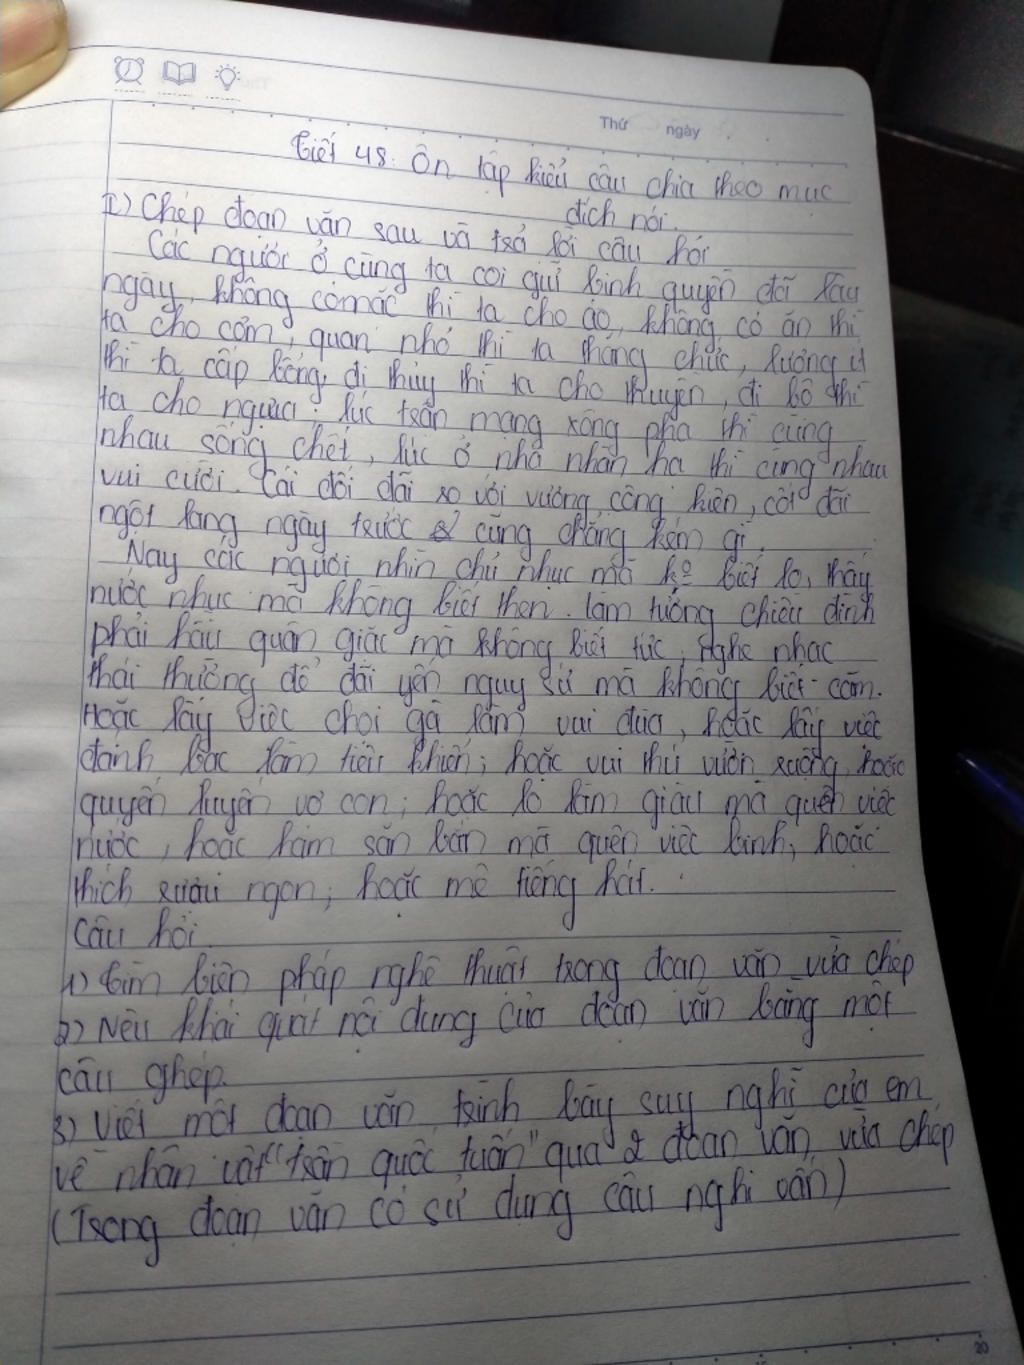 Thứ ngày
Tiết 48: Ôn tập kiểu câu chia theo mục
đích nói.
I) Chép đoạn văn sau và trả lời câu hỏi
Các ngươi ở cùng ta coi giữ binh quyền đã lâu
ngày, không có mặc thì ta cho áo, không có ăn thì
ta cho cơm, quan nhỏ thì ta thăng chức, lương ít
thì ta cấp bổng, đi thủy thì ta cho thuyền, đi bộ thì
ta cho ngựa. lúc trận mạng xông pha thì cùng
nhau sống chết, lúc ở nhà nhàn hạ thì cùng nhau
vui cười. Cái đối đãi so với vương công kiên, cốt đãi
ngột lang ngày trước cũng chẳng kém gì.
Nay các ngươi nhìn chủ nhục mà ko biết lo, thấy
nước nhục mà không biết thẹn. làm tướng chiều đình
phải hầu quân giặc mà không biết tức, nghe nhạc
thái thường để đãi yến nguỵ sứ mà không biết căm.
Hoặc lấy việc chọi gà làm vui đùa, hoặc lấy việc
đánh bạc làm tiêu khiển; hoặc vui thú vườn ruộng, hoặc
quyến luyến vợ con; hoặc lo làm giàu mà quên việc
nước, hoặc ham săn bắn mà quên việc binh, hoặc
thích rượu ngon; hoặc mê tiếng hát.
Câu hỏi.
1) Tìm biện pháp nghệ thuật trong đoạn văn vừa chép
2) Nêu khái quát nội dung của đoạn văn bằng một
câu ghép.
3) Viết một đoạn văn trình bày suy nghĩ của em
về nhân vật "trần quốc tuấn" qua 2 đoạn văn vừa chép
(Trong đoạn văn có sử dụng câu nghi vấn)
20